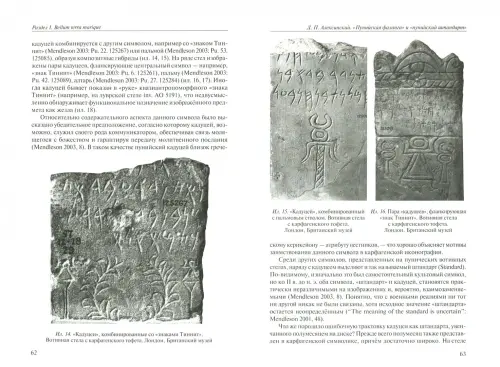 Раздел 1. Bellum terra marique
кадуцей комбинируется с другим символом, например со «знаком Тин-
нит» (Mendleson 2003: Pu. 22. 125267) или пальмой (Mendleson 2003: Pu. 53.
125083), образуя композитные гибриды (ил. 14, 15). На ряде стел изобра-
жены пары кадуцеев, фланкирующие центральный символ — например,
«знак Тиннит» (Mendleson 2003: Pu. 6. 125261), пальму (Mendleson 2003: Pu.
42. 125089), алтарь (Mendleson 2003: Pu. 27. 125284) (ил. 16, 17). Ино-
гда кадуцей бывает показан в «руке» квазиантропоморфного «знака
Тиннит» (например, на луврской стеле inv. AO 5191), что недвусмыс-
ленно обнаруживает функциональное назначение изображённого пред-
мета как жезла (ил. 18).
Относительно содержательного аспекта данного символа было вы-
сказано убедительное предположение, согласно которому кадуцей, воз-
можно, служил своего рода коммуникатором, обеспечивая связь моля-
щегося с божеством и гарантируя передачу молитвенного послания
(Mendleson 2003, 8). В таком качестве пунийский кадуцей близок грече-
Ил. 14. «Кадуцей», комбинированные со «знаками Тиннит».
Вотивная стела с карфагенского тофета. Лондон. Британский музей
62
Д. П. Алексинский. «Пунийская фаланга» и «пунийский штандарт»
Ил. 15. «Кадуцей», комбинированный
с пальмовым стволом. Вотивная стела
с карфагенского тофета.
Лондон. Британский музей
Ил. 16. Пара «кадуцеев», фланкирующая
«знак Тиннит». Вотивная стела
с карфагенского тофета.
Лондон. Британский музей
скому керикейону — атрибуту вестников, — что хорошо объясняет мотивы
заимствования данного символа в карфагенской иконографии.
Среди других символов, представленных на пунических вотивных
стелах, наряду с кадуцеем выделяют и так называемый штандарт (Standard).
По-видимому, изначально это был самостоятельный культовый символ,
но ко II в. до н. э. оба символа, «штандарт» и кадуцей, становятся практи-
чески неразличимыми на изображениях и, вероятно, взаимозаменяе-
мыми (Mendleson 2003, 8). Понятно, что с военными реалиями ни тот
ни другой никак не были связаны, хотя исходное значение «штандарта»
остается неопределённым ("The meaning of the standard is uncertain":
Mendleson 2001, 46).
Что же породило ошибочную трактовку кадуцея как штандарта, увен-
чанного полумесяцем на диске? Прежде всего полумесяц также представ-
лен в карфагенской символике, причём достаточно широко. На стеле
63